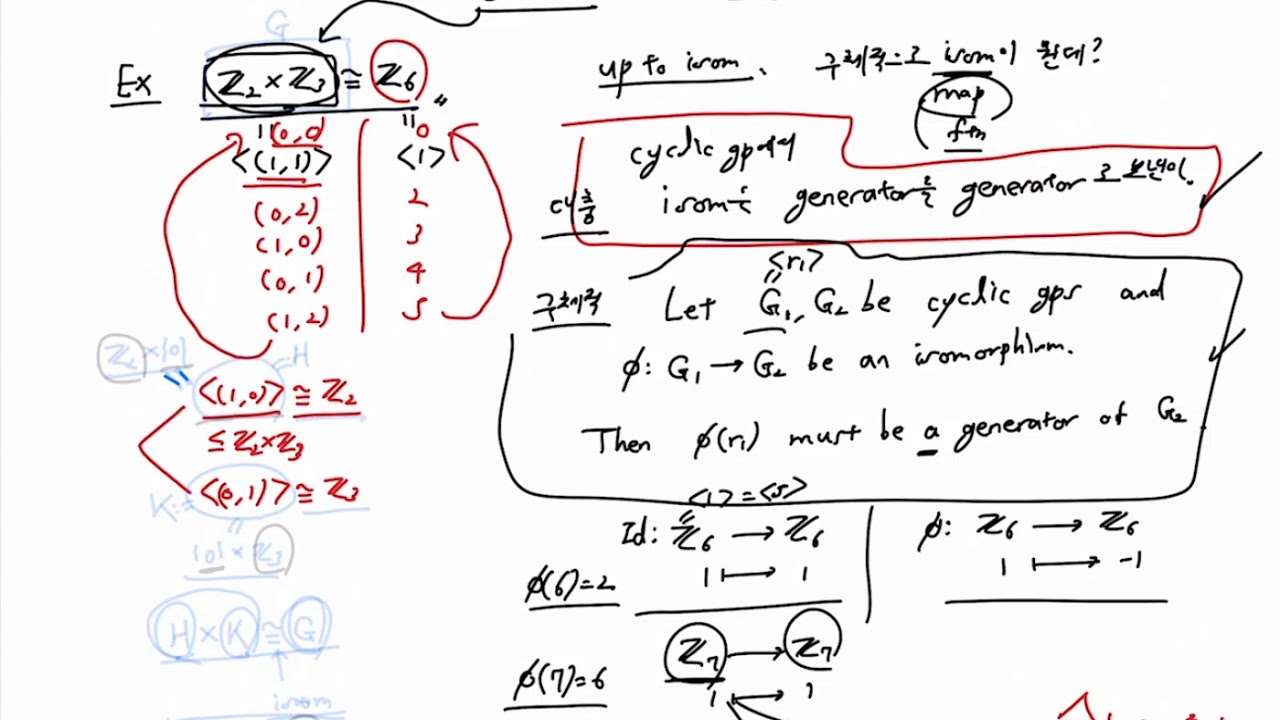 G
Ex ℤ₂ × ℤ₃ ≅ ℤ₆
(0,0) 0
<(1,1)> <1>
(0,2) 2
(1,0) 3
(0,1) 4
(1,2) 5
ℤ₂ × {0}
H
<(1,0)> ≅ ℤ₂
≤ ℤ₂×ℤ₃
K := <(0,1)> ≅ ℤ₃
{0} × ℤ₃
H × K ≅ G
isom
up to isom. 구체적으로 isom이 뭔데?
map
ftn
cyclic gp에서
isom은 generator를 generator로 보낸다.
구체적 Let G₁, G₂ be cyclic gps and
<r₁>
ϕ: G₁ → G₂ be an isomorphism.
Then ϕ(r₁) must be a generator of G₂
<1> = <5>
Id: ℤ₆ → ℤ₆
1 ↦ 1
ϕ: ℤ₆ → ℤ₆
1 ↦ -1
ϕ(6)=2
ℤ₇ → ℤ₇
1 ↦ 1
ϕ(7)=6